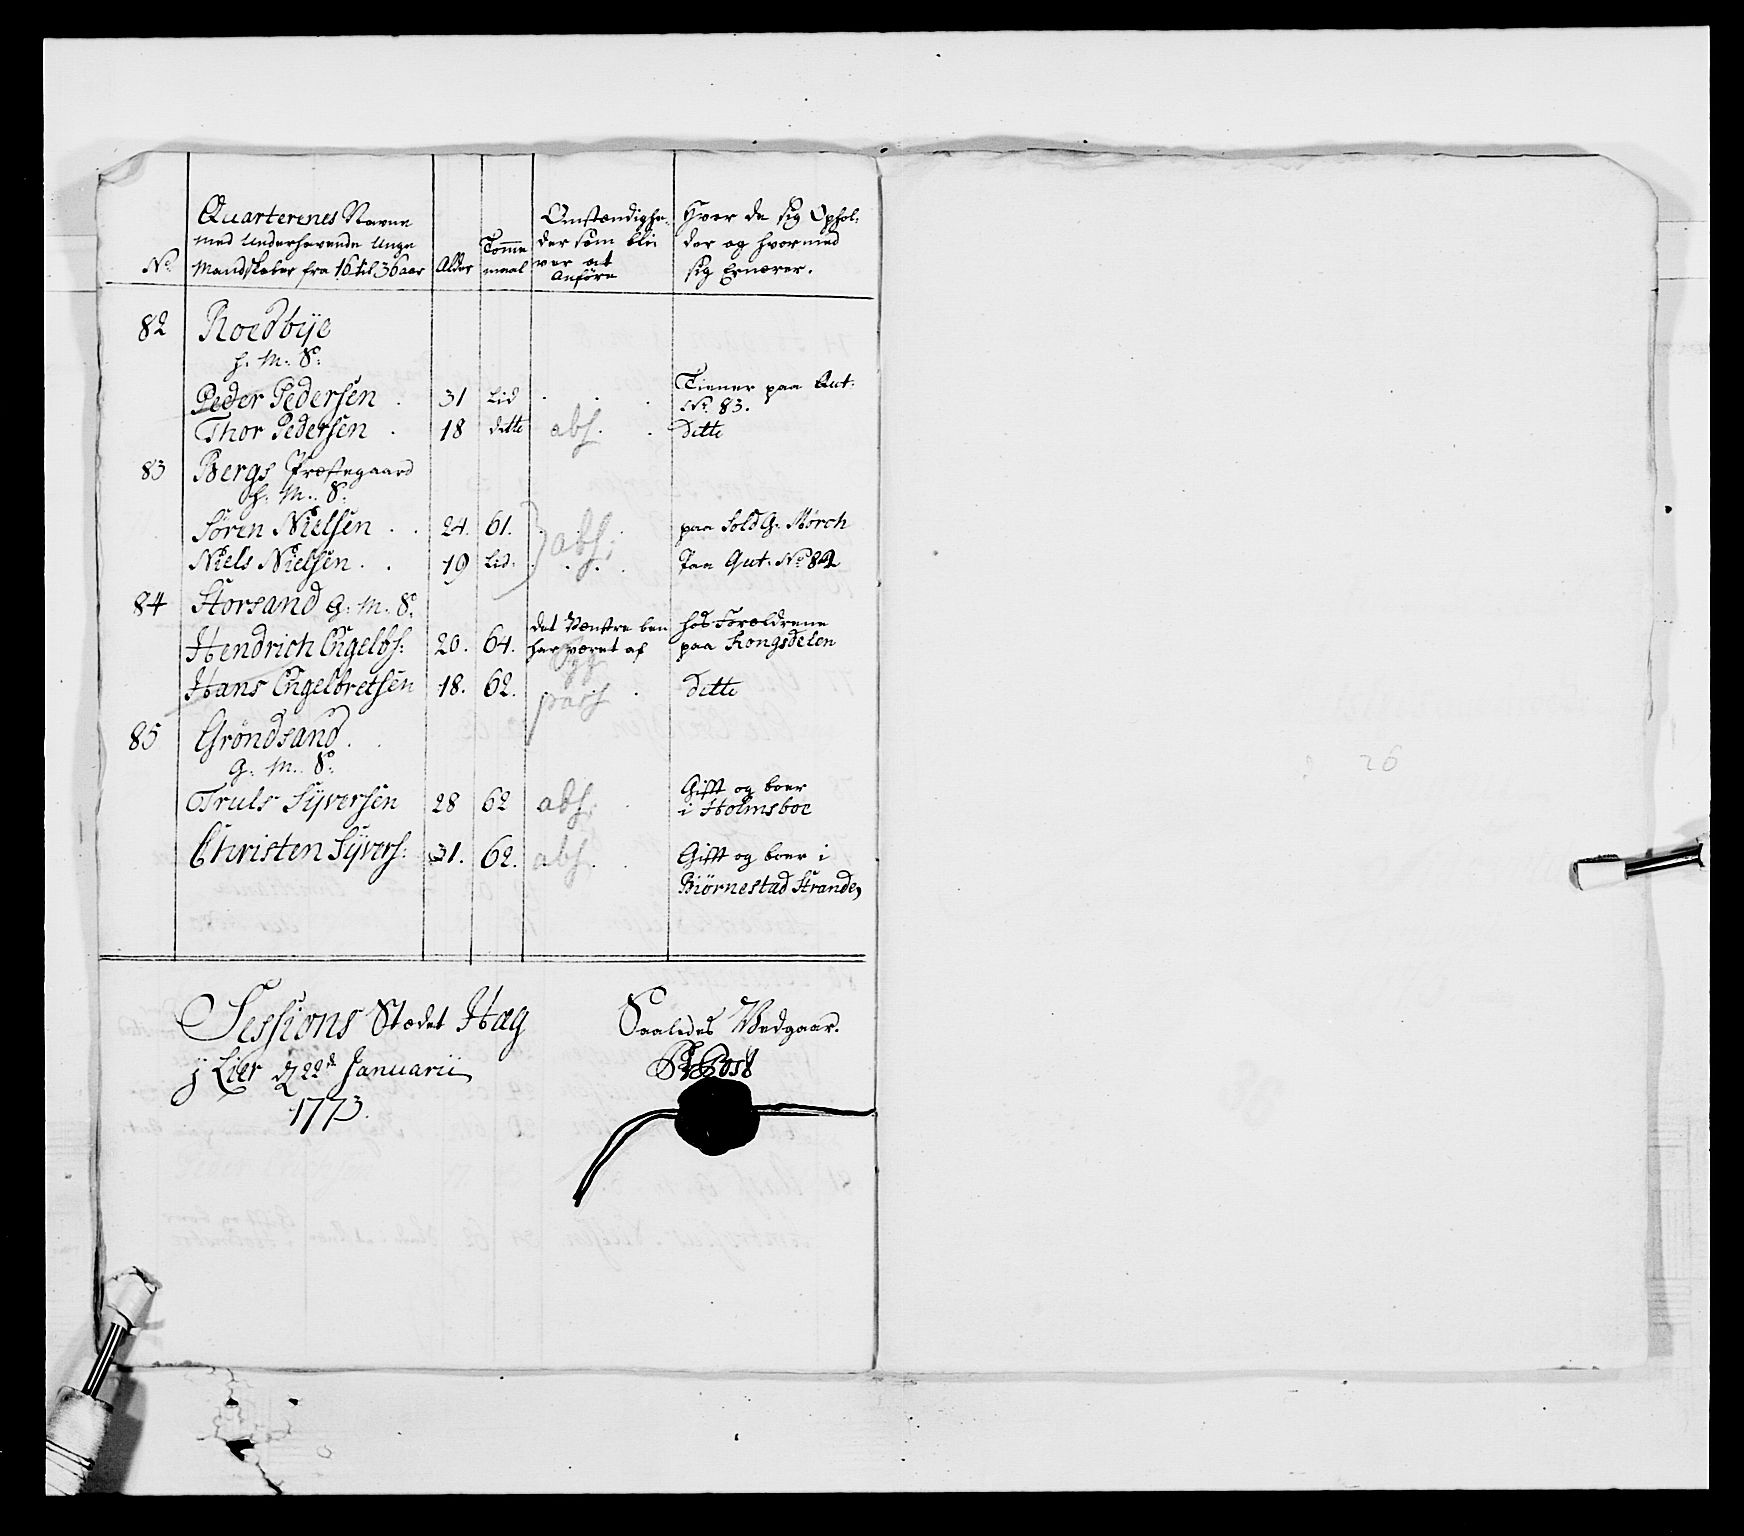 No. | Quarterenes Navne med underhavende Unge Mandskaber fra 16 til 36 aar | Alder | Tomme maal | Omstændigheder som bliver at Anføre | Hvor de sig Opholder og hvormed sig Ernærer.
82 Roedbÿe
h. M. S:
Peder Pedersen . 31 Lid . . . Tiener paa Qut: No. 83.
Thor Pedersen . 18 ditto abs. . ditto
83 Bergs Præstegaard
h. M. S:
Søren Nielsen . . 24. 61. abs: paa Sold G. Mørch
Niels Nielsen . . 19 Lid. . . . Paa Qut: No 82
84 Storsand G. M. S:
Hendrich Engelbs: 20. 64. det Vænstre ben har været af hos Forældrene paa Kongsdelen
Hans Engelbretsen 18. 62. pass . ditto
85 Grøndsand . .
G. M. S:
Truls Sÿversen 28 62 abs: . Gifft og boer i Holmsboe
Christen Sÿvers: 31. 62. abs. . Gifft og boer i Biørnestad Strande,
Sessions Stædet Hæg Saaledes Vedgaar.
ÿ Lier d 22d Januarii
1773.
26